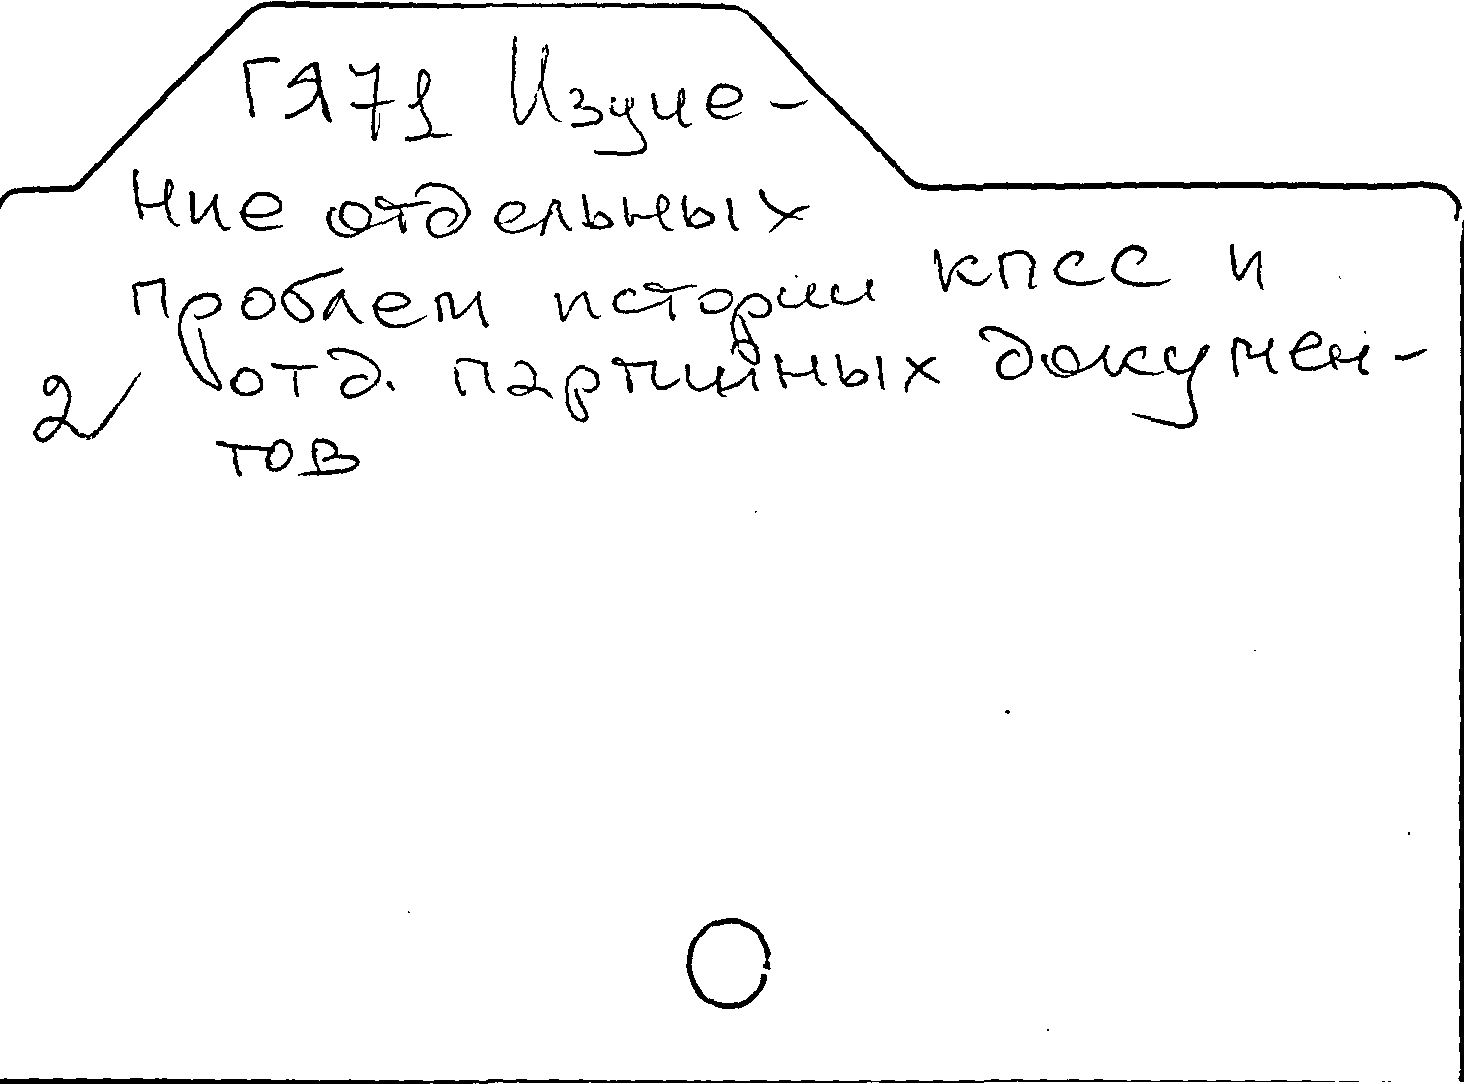 ГЯ71 Изуче-
ние отдельных
проблем истории КПСС и
2 отд. партийных докумен-
тов